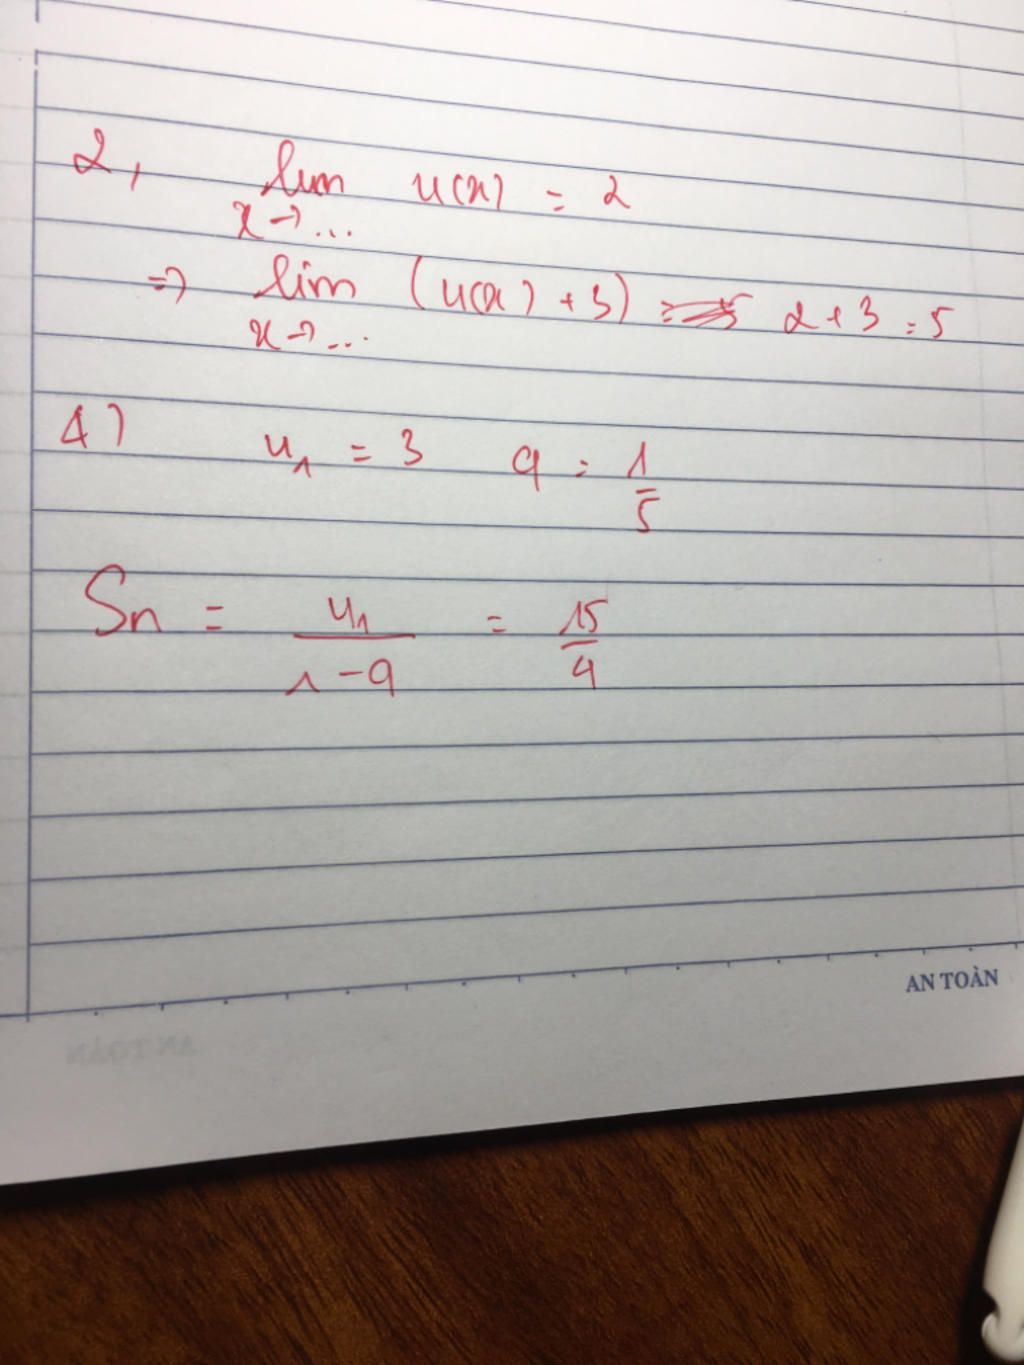 2, lim u(x) = 2
x→...
=> lim (u(x) + 3) = 2+3 = 5
x→...
4) u₁ = 3 q = 1/5
Sn = u₁/(1-q) = 15/4
AN TOÀN